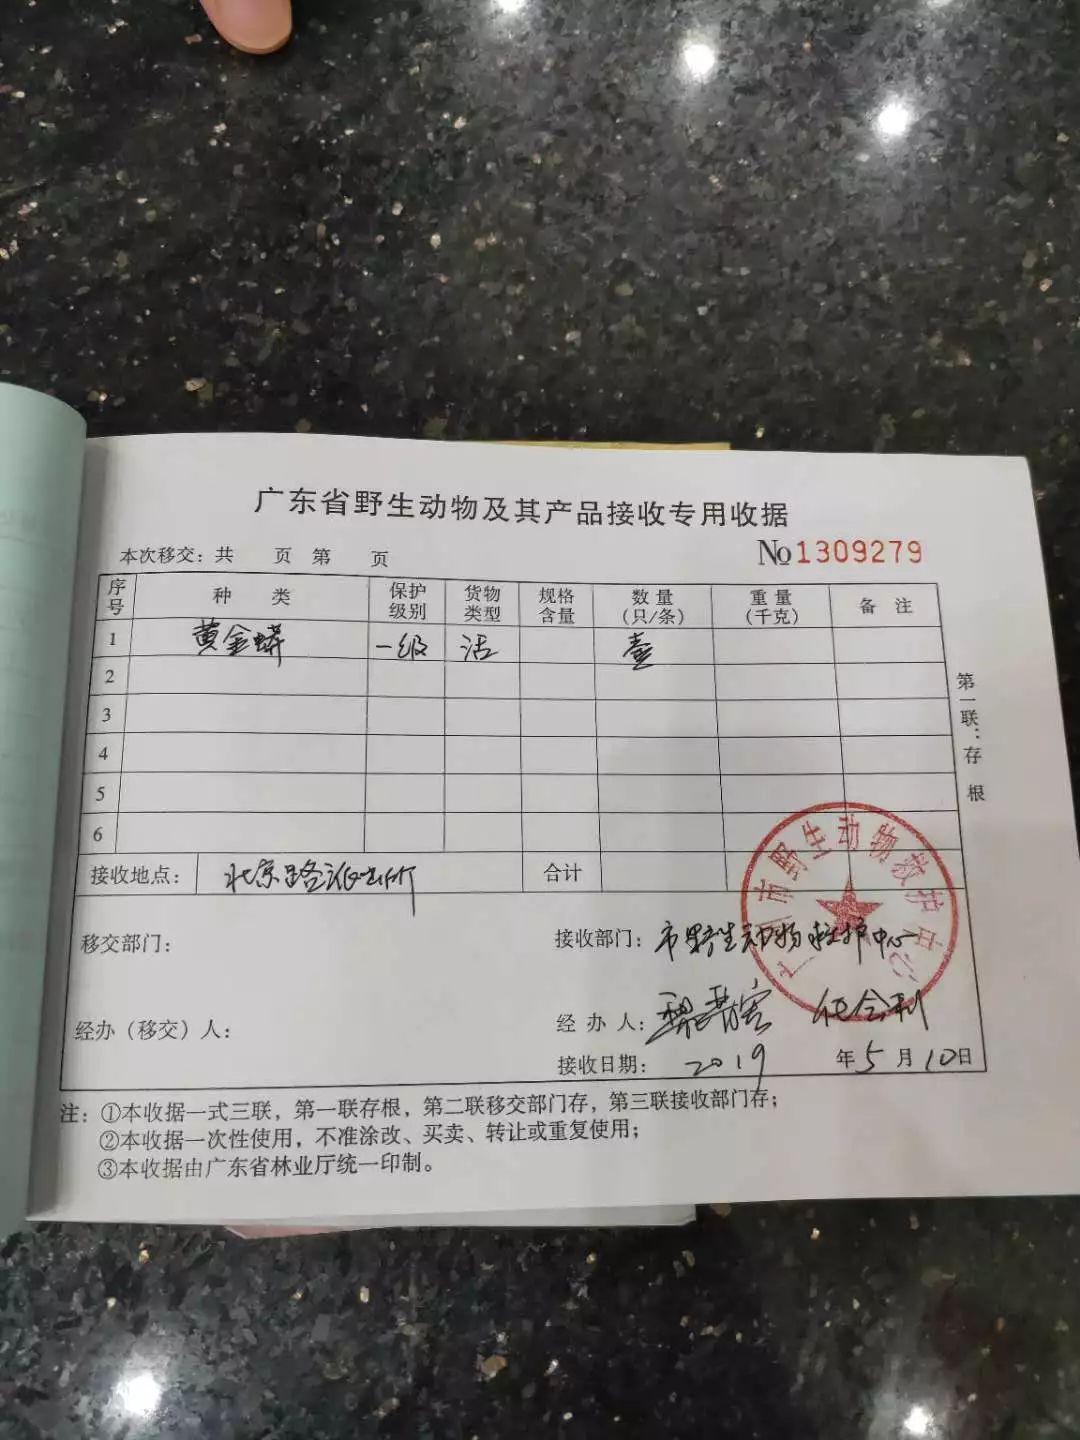 广东省野生动物及其产品接收专用收据
本次移交：共 页 第 页
№1309279
序号 种 类 保护级别 货物类型 规格含量 数量(只/条) 重量(千克) 备 注
1 黄金蟒 一级 活 壹
2
3
4
5
6
接收地点： 北京路派出所 合计
第一联：存根
移交部门： 接收部门：市野生动物救护中心
经办（移交）人： 经 办 人：
接收日期： 2019 年 5 月 10 日
广州市野生动物救护中心
注：①本收据一式三联，第一联存根，第二联移交部门存，第三联接收部门存；
②本收据一次性使用，不准涂改、买卖、转让或重复使用；
③本收据由广东省林业厅统一印制。